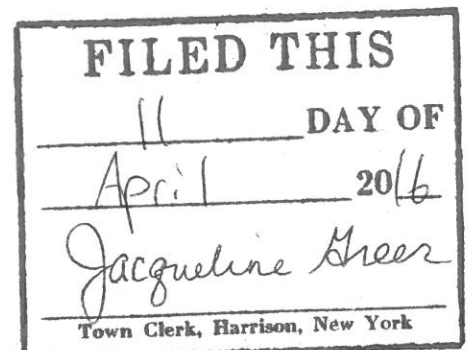 FILED THIS
11 DAY OF
April 2016
Jacqueline Greer
Town Clerk, Harrison, New York